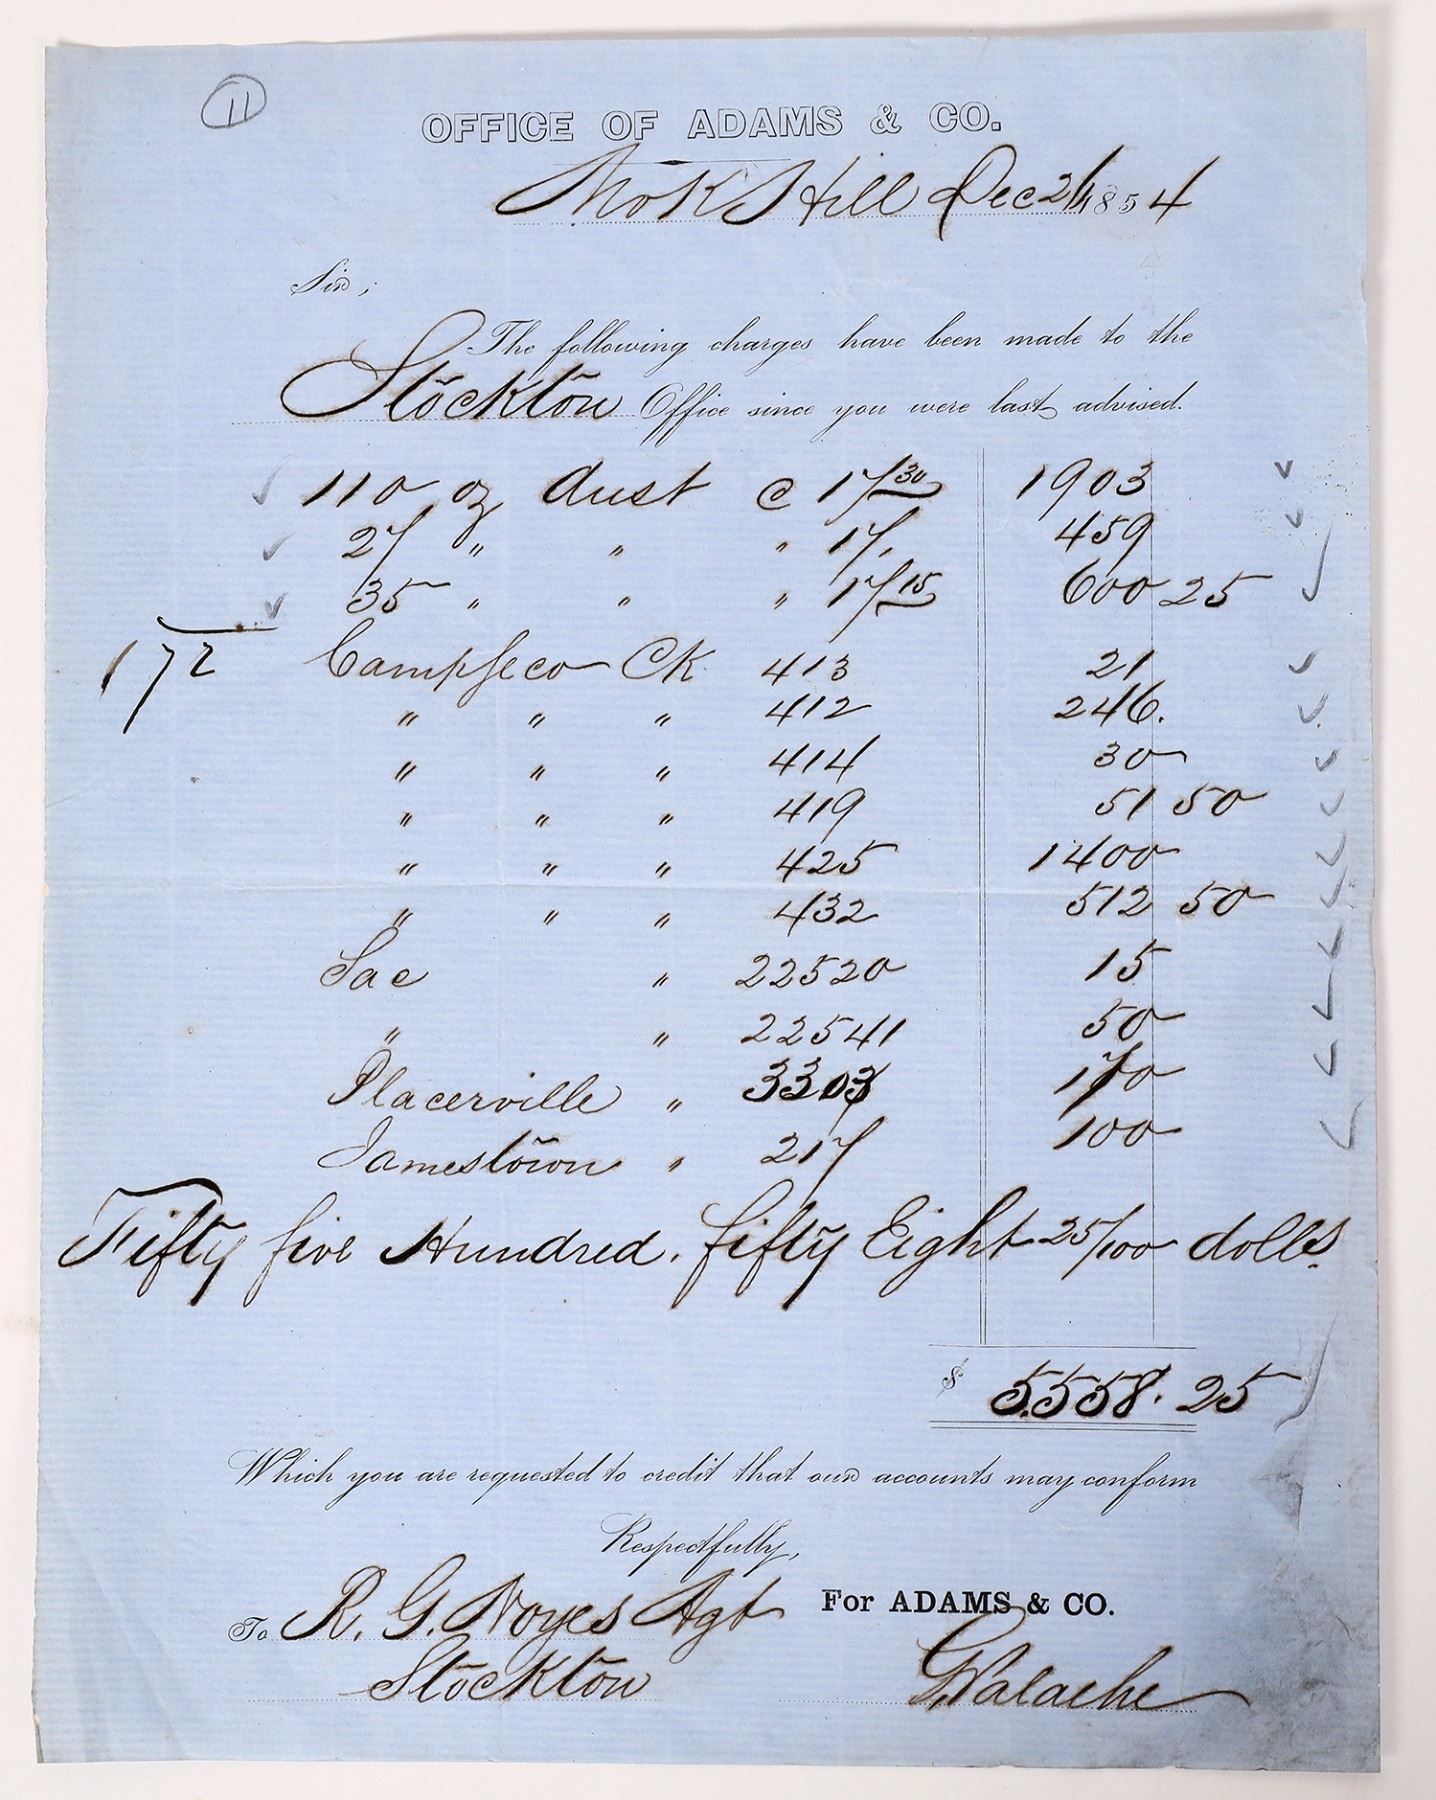 11
OFFICE OF ADAMS & CO.
Mok Hill Dec 21 1854
Sir;
The following charges have been made to the
Stockton Office since you were last advised.
110 oz dust @ 17 30 1903
27 " " " 17. 459
35 " " " 17 15 600 25
172
Campseco Ck 413 21
" " " 412 246.
" " " 414 30
" " " 419 51 50
" " " 425 1400
" " " 432 512 50
Sac " 22520 15
" " 22541 50
Placerville " 3303 170
Jamestown " 217 100
Fifty five Hundred. fifty Eight 25/100 dolls.
$ 5558. 25
Which you are requested to credit that our accounts may conform
Respectfully,
For ADAMS & CO.
To R. G. Noyes Agt
Stockton